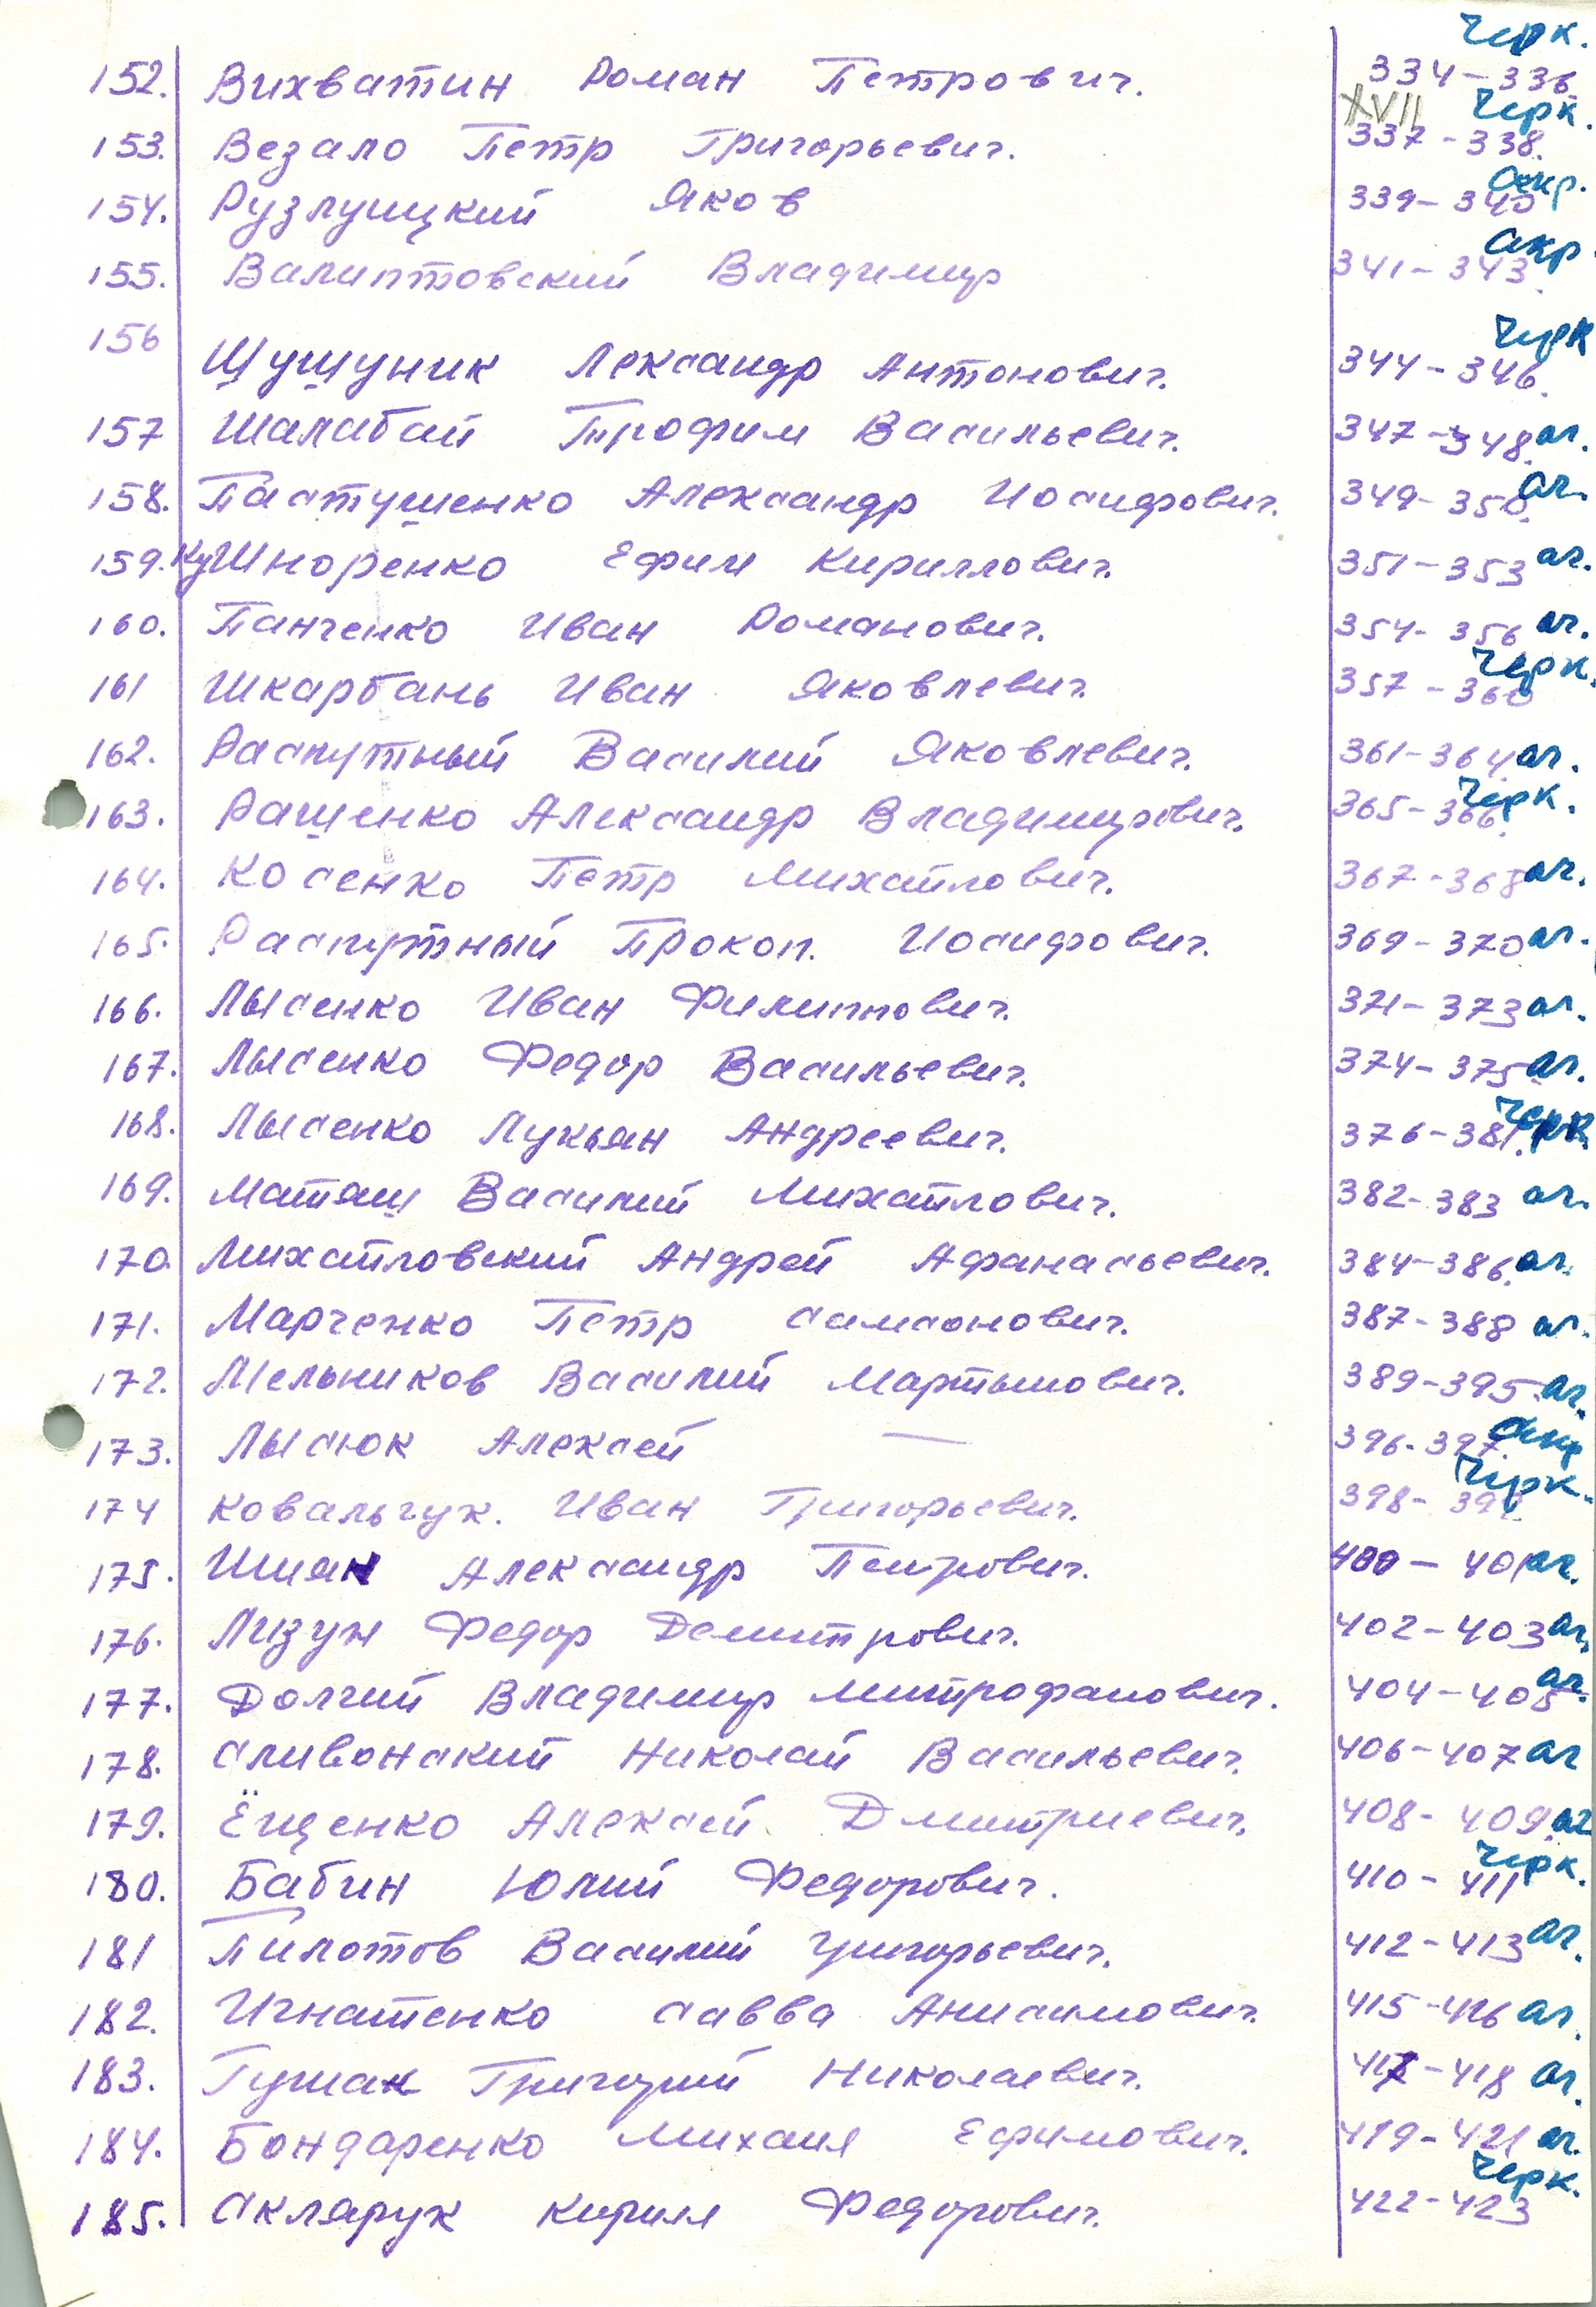 152. Вихватин Роман Петрович. 334-336. Черк.
XVII
153. Везало Петр Григорьевич. 337-338. Черк.
154. Рузлуицкий Яков 339-340
155. Валиптовский Владимир 341-343.
156 Шушуник Лександр Антонович. 344-346. Черк
157 Шалабай Трофим Васильевич. 347-348. аг.
158. Пастушенко Александр Иосифович. 349-350. аг.
159. КуШноренко Ефим Кириллович. 351-353 аг.
160. Панченко Иван Романович. 354-356 аг.
161 Шкарбань Иван Яковлевич. 357-360 Черк.
162. Распутный Василий Яковлевич. 361-364 аг.
163. Ращенко Александр Владимирович. 365-366. Черк.
164. Косенко Петр Михайлович. 367-368 аг.
165. Распутный Прокоп. Иосифович. 369-370 аг.
166. Лысенко Иван Филиппович. 371-373 аг.
167. Лысенко Федор Васильевич. 374-375 аг.
168. Лысенко Лукьян Андреевич. 376-381. Черк.
169. Маташ Василий Михайлович. 382-383 аг.
170. Михайловский Андрей Афанасьевич. 384-386. аг.
171. Марченко Петр Самсонович. 387-388 аг.
172. Мельников Василий Мартынович. 389-395. аг.
173. Лысюк Алексей — 396-397.
174 Ковальчук. Иван Григорьевич. 398-399. Черк.
175. Шиян Александр Петрович. 400-401 аг.
176. Лизун Федор Демитрович. 402-403 аг.
177. Долгий Владимир Митрофанович. 404-405 аг.
178. Сливонский Николай Васильевич. 406-407 аг
179. Ёщенко Алексей Дмитриевич. 408-409. аг
180. Бабин Юлий Федорович. 410-411 Черк.
181 Пилотов Василий Григорьевич. 412-413 аг.
182. Игнатенко Савва Анисимович. 415-416 аг.
183. Гушан Григорий Николаевич. 417-418 аг.
184. Бондаренко Михаил Ефимович. 419-421 аг.
185. Склярук Кирилл Федорович. 422-423 Черк.